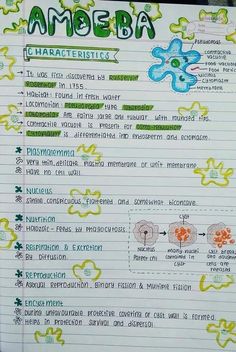 AMOEBA
CHARACTERISTICS
Pseudopodia
Contractile
vacuole
Food
Nucleus
Cytoplasm
Membrane
→ It was first discovered by
in 1755.
→ Habitat: Found in fresh water
→ Locomotion: Pseudopodia type
are fairly large and tubular with rounded tips.
→ Contractile vacuole is present for osmoregulation
→ Cytoplasm is differentiated into endoplasm and ectoplasm.
Plasmalemma
→ Very thin, delicate plasma membrane or unit membrane
→ Have no cell wall.
Nucleus
→ Single, conspicuous, flattened and somewhat biconcave.
Nutrition
→ Holozoic - Feeds by phagocytosis
Respiration & Excretion
→ By Diffusion.
Reproduction
→ Asexual Reproduction, Binary Fission & Multiple Fission
Cyst
Nucleus
Parent
many nuclei
contained in
cyst
Cyst
and daughter
cells are
released
Encystment
→ During unfavourable protective covering or cyst wall is formed.
→ Helps in protection survival and dispersal.